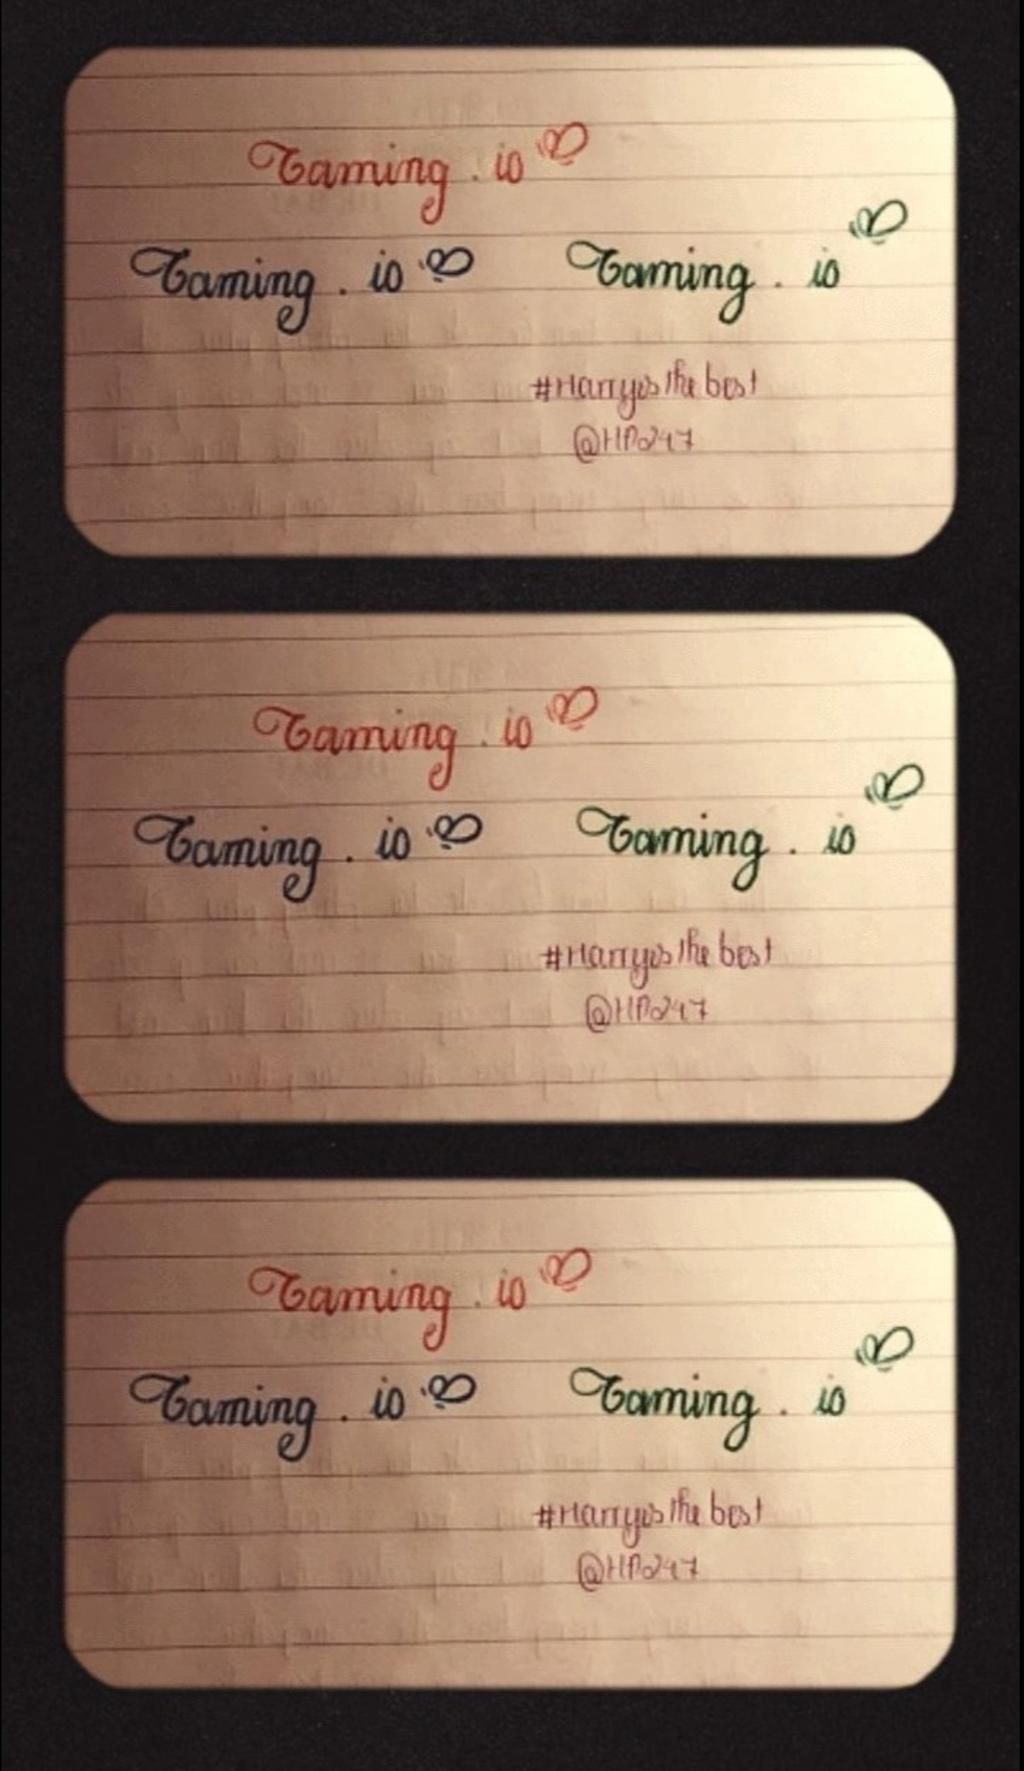 Taming . io
Taming . io Taming . io
#Harryisthebest
@HP247
Taming . io
Taming . io Taming . io
#Harryisthebest
@HP247
Taming . io
Taming . io Taming . io
#Harryisthebest
@HP247